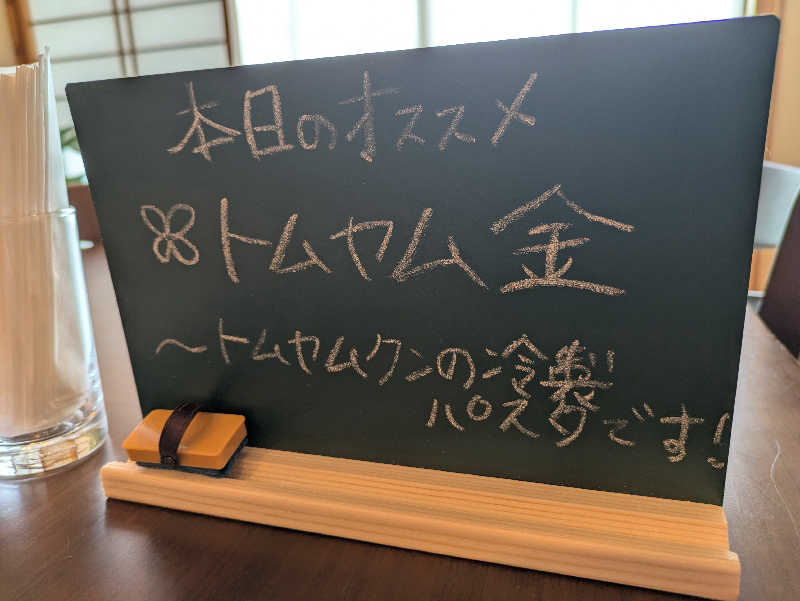 本日のオススメ
トムヤム金
～トムヤムクンの冷製
パスタです!